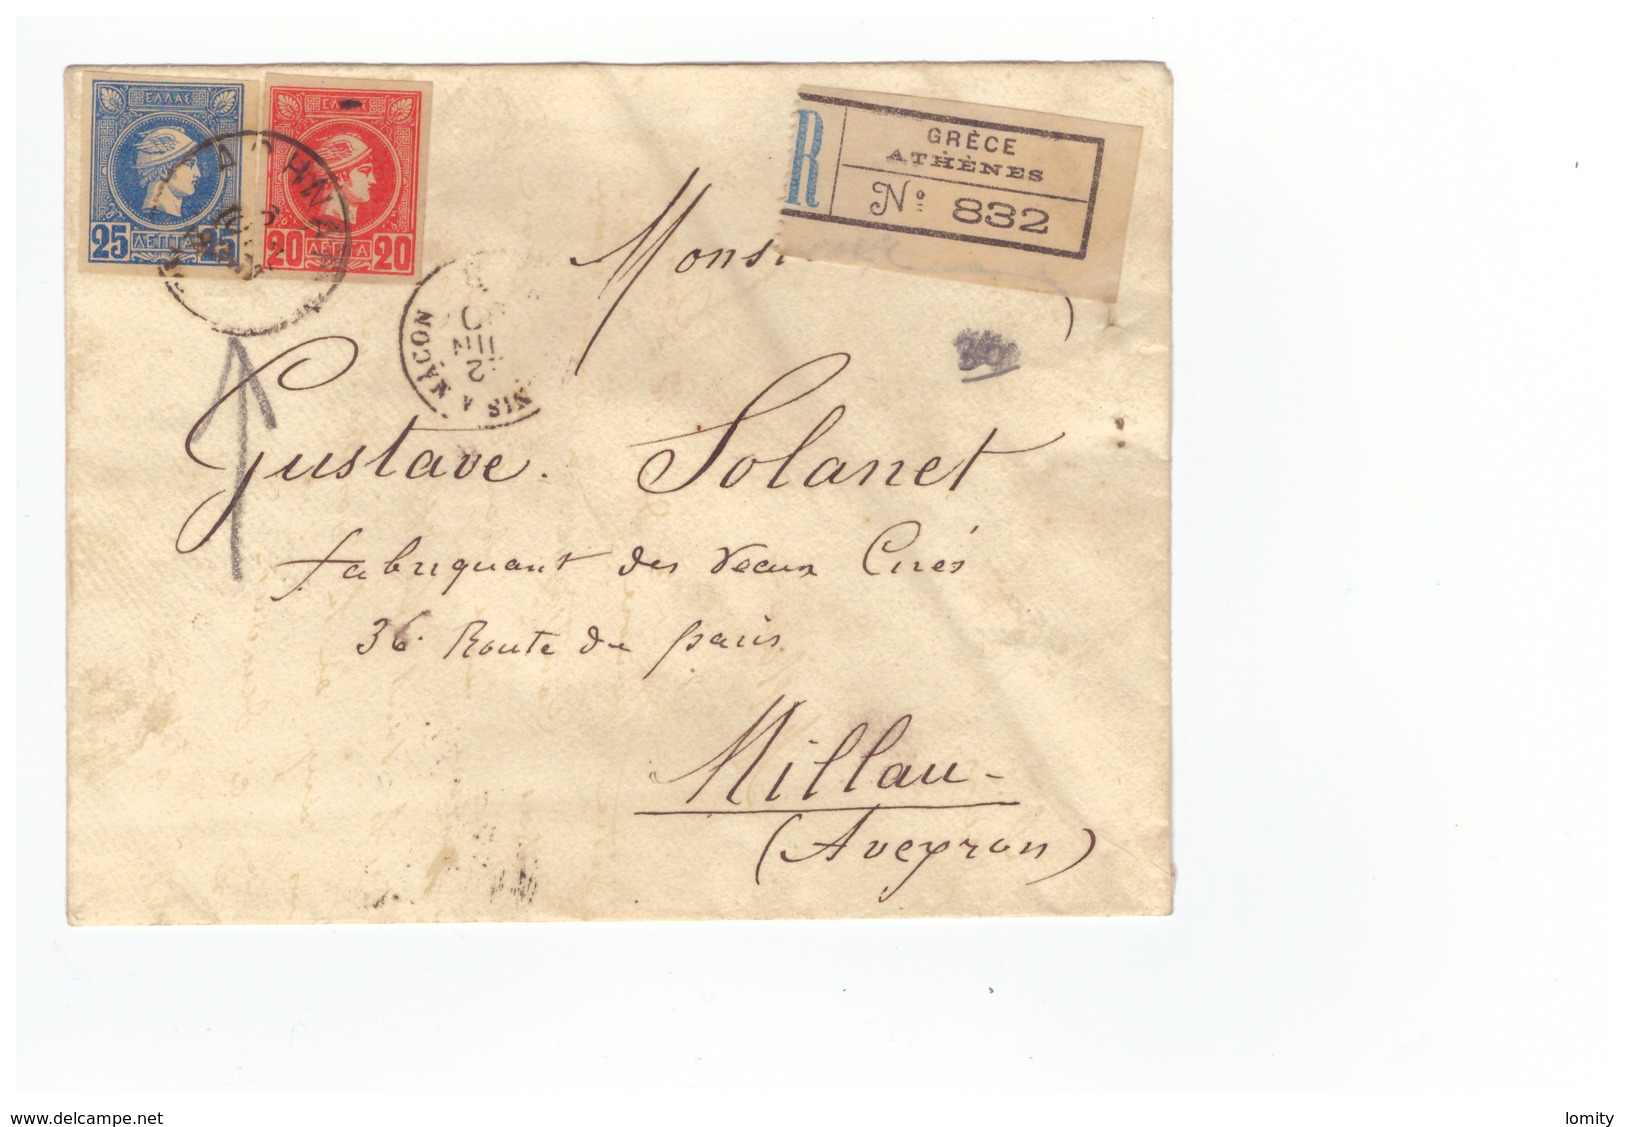 ΕΛΛΑΣ
25 ΛΕΠΤΑ 25
ΕΛΛΑΣ
20 ΛΕΠΤΑ 20
ΑΘΗΝΑΙ
R
GRÈCE
ATHÈNES
No 832
A MÂCON
JUIN
Gustave Solanet
fabriquant des veaux Cirés
36. Route du paris
Millau -
(Aveyron)
www.delcampe.net
lomity